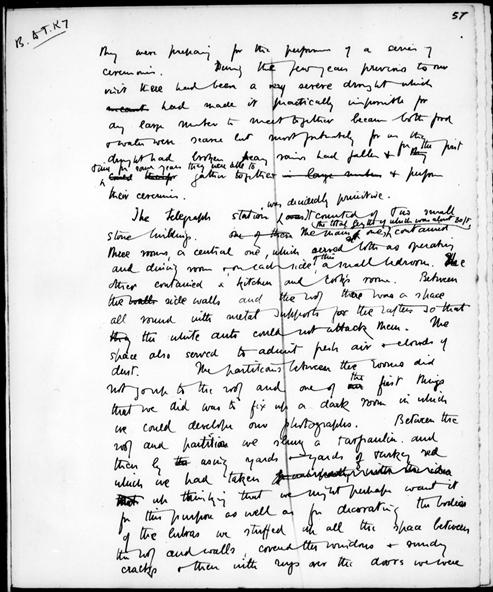 57
B. & T. K 7
they were preparing for the performance of a series of
ceremonies. During the few years previous to our
visit there had been a very severe drought which
had made it practically impossible for
any large number to meet together because both food
& water were scarce but most fortunately for us the
drought had broken heavy rains had fallen & for the first
time for some years they were able to
gather together in large numbers & perform
their ceremonies.
was decidedly primitive.
The Telegraph station consisted of two small
the total length of which was about 30 ft,
stone buildings. one of them the main one contained
three rooms, a central one, which served both as operating
and dining room & on each side of this a small bedroom. The
other contained a kitchen and cook's room. Between
the walls side walls and the roof there was a space
all round with metal supports for the rafters so that
the white ants could not attack them. The
space also served to admit fresh air & clouds of
dust. The partitions between the rooms did
not go up to the roof and one of the first things
that we did was to fix up a dark room in which
we could develope our photographs. Between the
roof and partition we slung a tarpaulin and
then by using yards & yards of turkey red
which we had taken
up thinking that we might perhaps want it
for this purpose as well as for decorating the bodies
of the lubras we stuffed up all the space between
the roof and walls, covered the windows & sundry
cracks & then with rugs over the doors we were